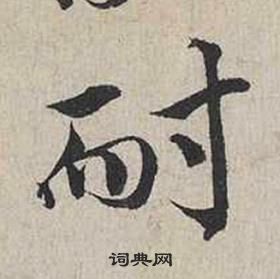 耐
词典网